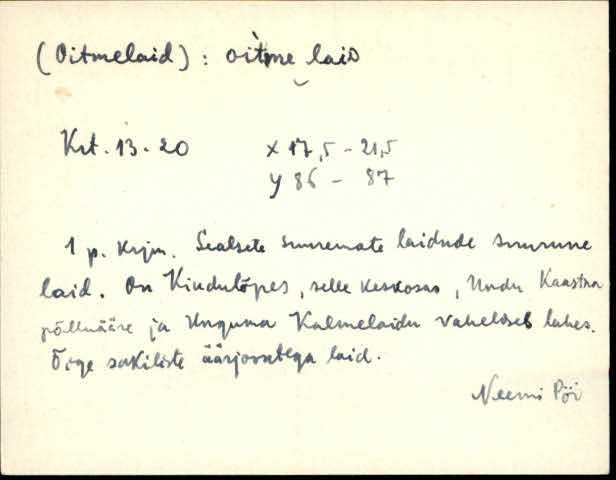 (Oitmelaid) : oitme laid
Krt. 13-20 x 17,5 - 21,5
y 86 - 87
1 p. krjm. Sealsete suuremate laidude suurune
laid. On Kindulõpes, selle keskosas, Undu Kaastna
põlluääre ja Unguma Kalmelaidu vahelises lahes.
Õige sakiliste äärjoontega laid.
Neemi Pöi